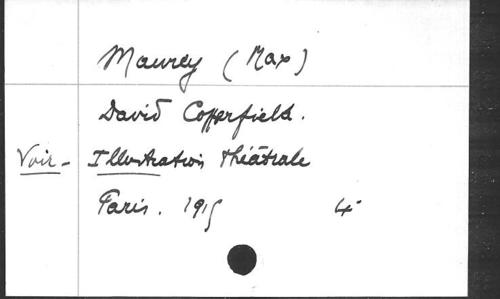 Maurey (Max)
David Copperfield.
Voir - Illustration théâtrale
Paris. 1915 4°